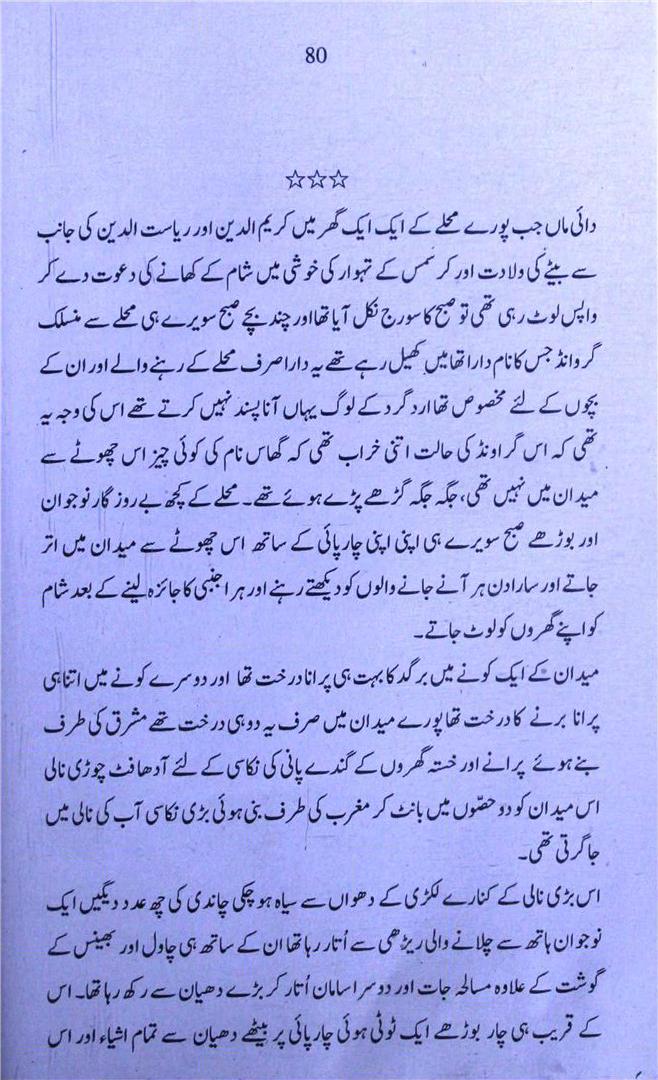 80
☆☆☆
دائی ماں جب پورے محلے کے ایک ایک گھر میں کریم الدین اور ریاست الدین کی جانب
سے بیٹے کی ولادت اور کرسمس کے تہوار کی خوشی میں شام کے کھانے کی دعوت دے کر
واپس لوٹ رہی تھی تو صبح کا سورج نکل آیا تھا اور چند بچے صبح سویرے ہی محلے سے منسلک
گروانڈ جس کا نام دارا تھا میں کھیل رہے تھے یہ دارا صرف محلے کے رہنے والے اور ان کے
بچوں کے لئے مخصوص تھا ارد گرد کے لوگ یہاں آنا پسند نہیں کرتے تھے اس کی وجہ یہ
تھی کہ اس گراونڈ کی حالت اتنی خراب تھی کہ گھاس نام کی کوئی چیز اس چھوٹے سے
میدان میں نہیں تھی، جگہ جگہ گڑھے پڑے ہوئے تھے۔ محلے کے کچھ بے روزگار نوجوان
اور بوڑھے صبح سویرے ہی اپنی اپنی چارپائی کے ساتھ اس چھوٹے سے میدان میں اتر
جاتے اور سارا دن ہر آنے جانے والوں کو دیکھتے رہنے اور ہر اجنبی کا جائزہ لینے کے بعد شام
کو اپنے گھروں کو لوٹ جاتے۔
میدان کے ایک کونے میں برگد کا بہت ہی پرانا درخت تھا اور دوسرے کونے میں اتنا ہی
پرانا برنے کا درخت تھا پورے میدان میں صرف یہ دو ہی درخت تھے مشرق کی طرف
بنے ہوئے پرانے اور خستہ گھروں کے گندے پانی کی نکاسی کے لئے آدھا فٹ چوڑی نالی
اس میدان کو دو حصّوں میں بانٹ کر مغرب کی طرف بنی ہوئی بڑی نکاسی آب کی نالی میں
جا گرتی تھی۔
اس بڑی نالی کے کنارے لکڑی کے دھواں سے سیاہ ہو چکی چاندی کی چھ عدد دیگیں ایک
نوجوان ہاتھ سے چلانے والی ریڑھی سے اُتار رہا تھا ان کے ساتھ ہی چاول اور بھینس کے
گوشت کے علاوہ مسالحہ جات اور دوسرا سامان اُتار کر بڑے دھیان سے رکھ رہا تھا۔ اس
کے قریب ہی چار بوڑھے ایک ٹوٹی ہوئی چارپائی پر بیٹھے دھیان سے تمام اشیاء اور اس